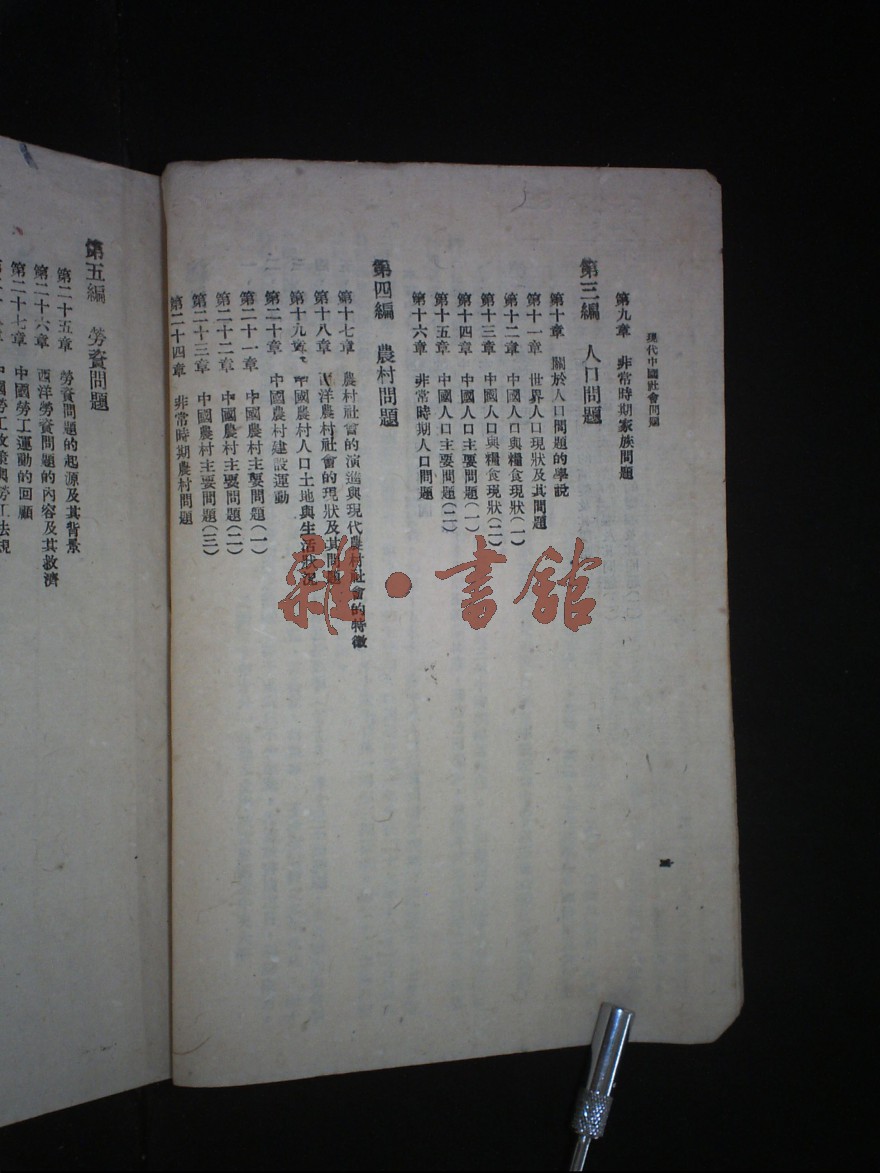 現代中國社會問題
第九章　非常時期家族問題
第三編　人口問題
第十章　關於人口問題的學說
第十一章　世界人口現狀及其問題
第十二章　中國人口與糧食現狀(一)
第十三章　中國人口與糧食現狀(二)
第十四章　中國人口主要問題(一)
第十五章　中國人口主要問題(二)
第十六章　非常時期人口問題
第四編　農村問題
第十七章　農村社會的演進與現代農村社會的特徵
第十八章　西洋農村社會的現狀及其問題
第十九章　中國農村人口土地與生活狀況
第二十章　中國農村建設運動
第二十一章　中國農村主要問題(一)
第二十二章　中國農村主要問題(二)
第二十三章　中國農村主要問題(三)
第二十四章　非常時期農村問題
第五編　勞資問題
第二十五章　勞資問題的起源及其背景
第二十六章　西洋勞資問題的內容及其救濟
第二十七章　中國勞工運動的回顧
中國勞工政策與勞工法規
雜·書館